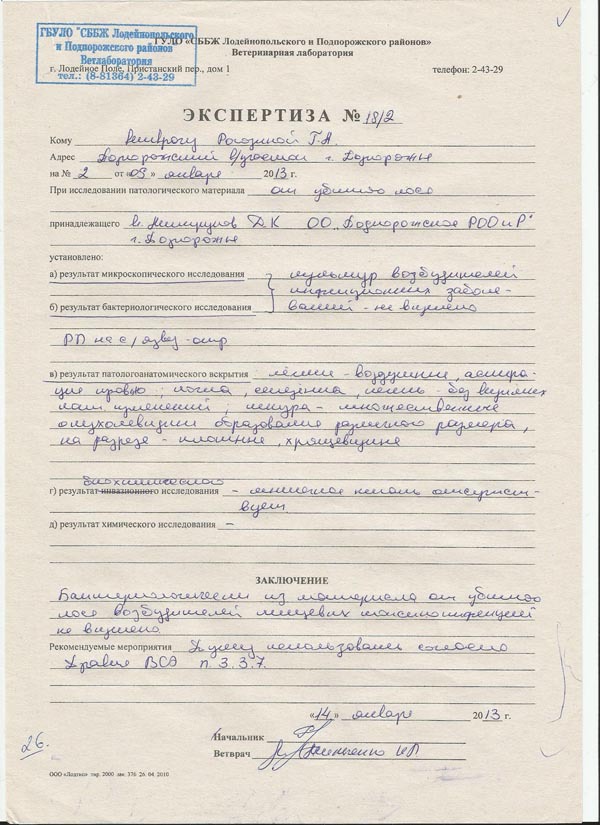 ГБУЛО "СББЖ Лодейнопольского
и Подпорожского районов
Ветлаборатория
тел.: (8-81364) 2-43-29
ГУЛО «СББЖ Лодейнопольского и Подпорожского районов»
Ветеринарная лаборатория
г. Лодейное Поле, Пристанский пер., дом 1 телефон: 2-43-29
ЭКСПЕРТИЗА № 18/2
Кому Ветврачу Рогозиной Г.А.
Адрес Подпорожский в/участок г. Подпорожье
на № 2 от «09» января 2013 г.
При исследовании патологического материала от убитого лося
принадлежащего ДК ОО „Подпорожское РООиР"
г. Подпорожье
установлено:
а) результат микроскопического исследования культур возбудителей
инфекционных заболе-
б) результат бактериологического исследования ваний - не выделено
РП на с/язву - отр
в) результат патологоанатомического вскрытия легкие - воздушные, аспира-
ция кровью; почка, селезенка, печень - без видимых
пат. изменений; шкура - множественные
опухолевидные образования различного размера,
на разрезе - плотные, хрящевидные
биохимического
г) результат инвазионного исследования - мышечное отсутст-
вует.
д) результат химического исследования -
ЗАКЛЮЧЕНИЕ
Бактериологически из материала от убитого
лося возбудителей пищевых токсикоинфекций
не выделено
Рекомендуемые мероприятия Тушу использовать согласно
Правил ВСЭ п. 3.3.7.
«14» января 2013 г.
Начальник
Ветврач
26.
ООО «Лодтис» тир. 2000 зак. 376 26. 04. 2010